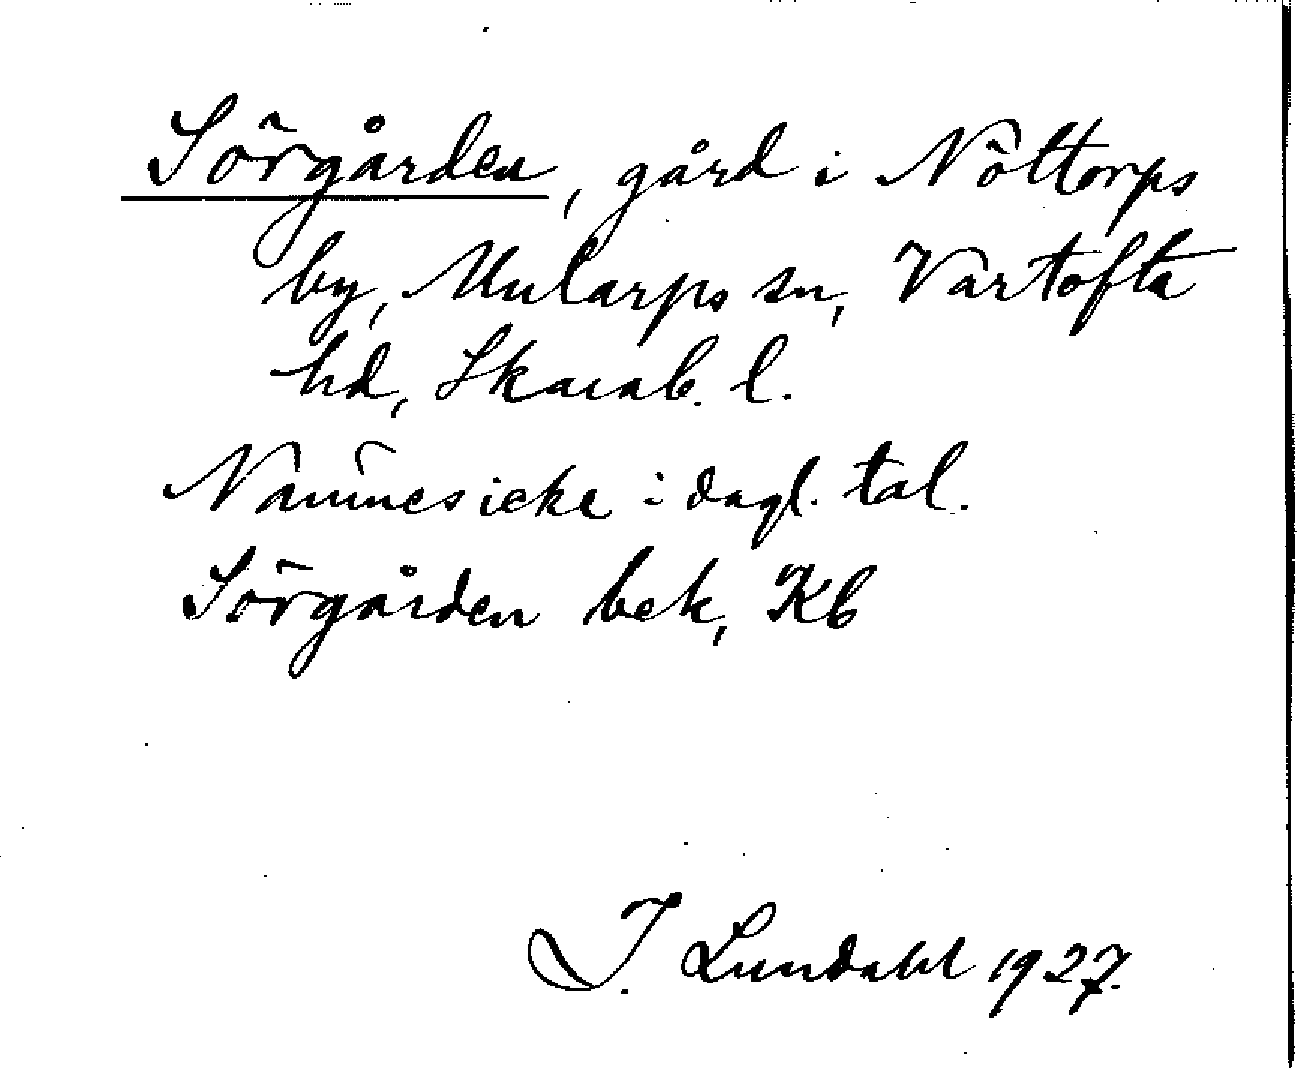 Sörgården, gård i Nöttorps
by, Mularps sn, Vartofta
hd, Skarab. l.
Nämnes icke i dagl. tal.
Sörgården bek, Kb
I. Lundahl 1927.